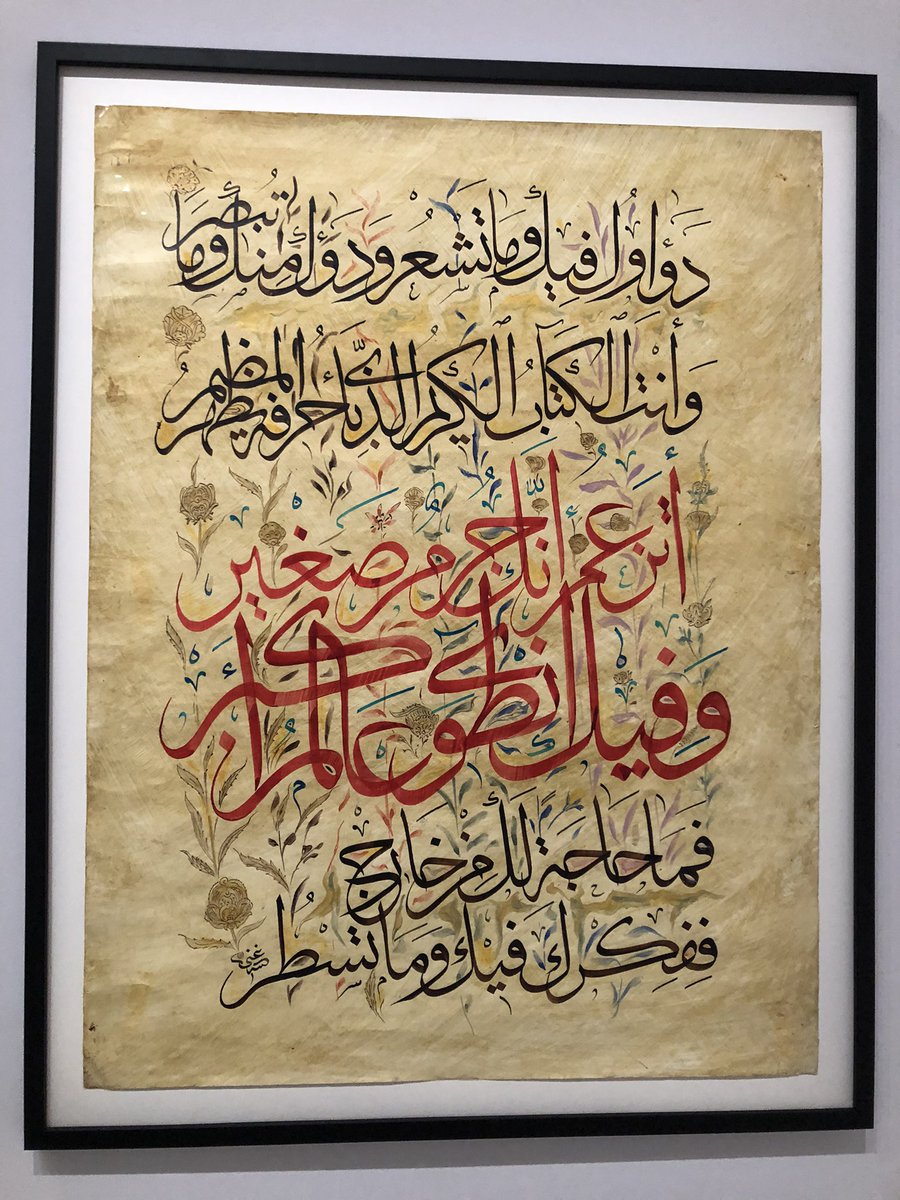 دواؤك فيك وما تشعر وداؤك منك وما تبصر
وأنت الكتاب الكريم الذي بأحرفه يظهر المظمر
أتزعم أنك جرم صغير
وفيك انطوى العالم الأكبر
فما حاجة لك من خارج
ففكرك فيك وما تسطر